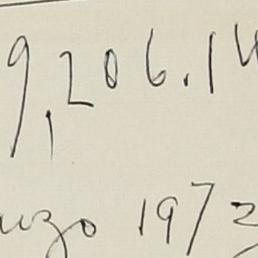 9,206.14
uzo 1973